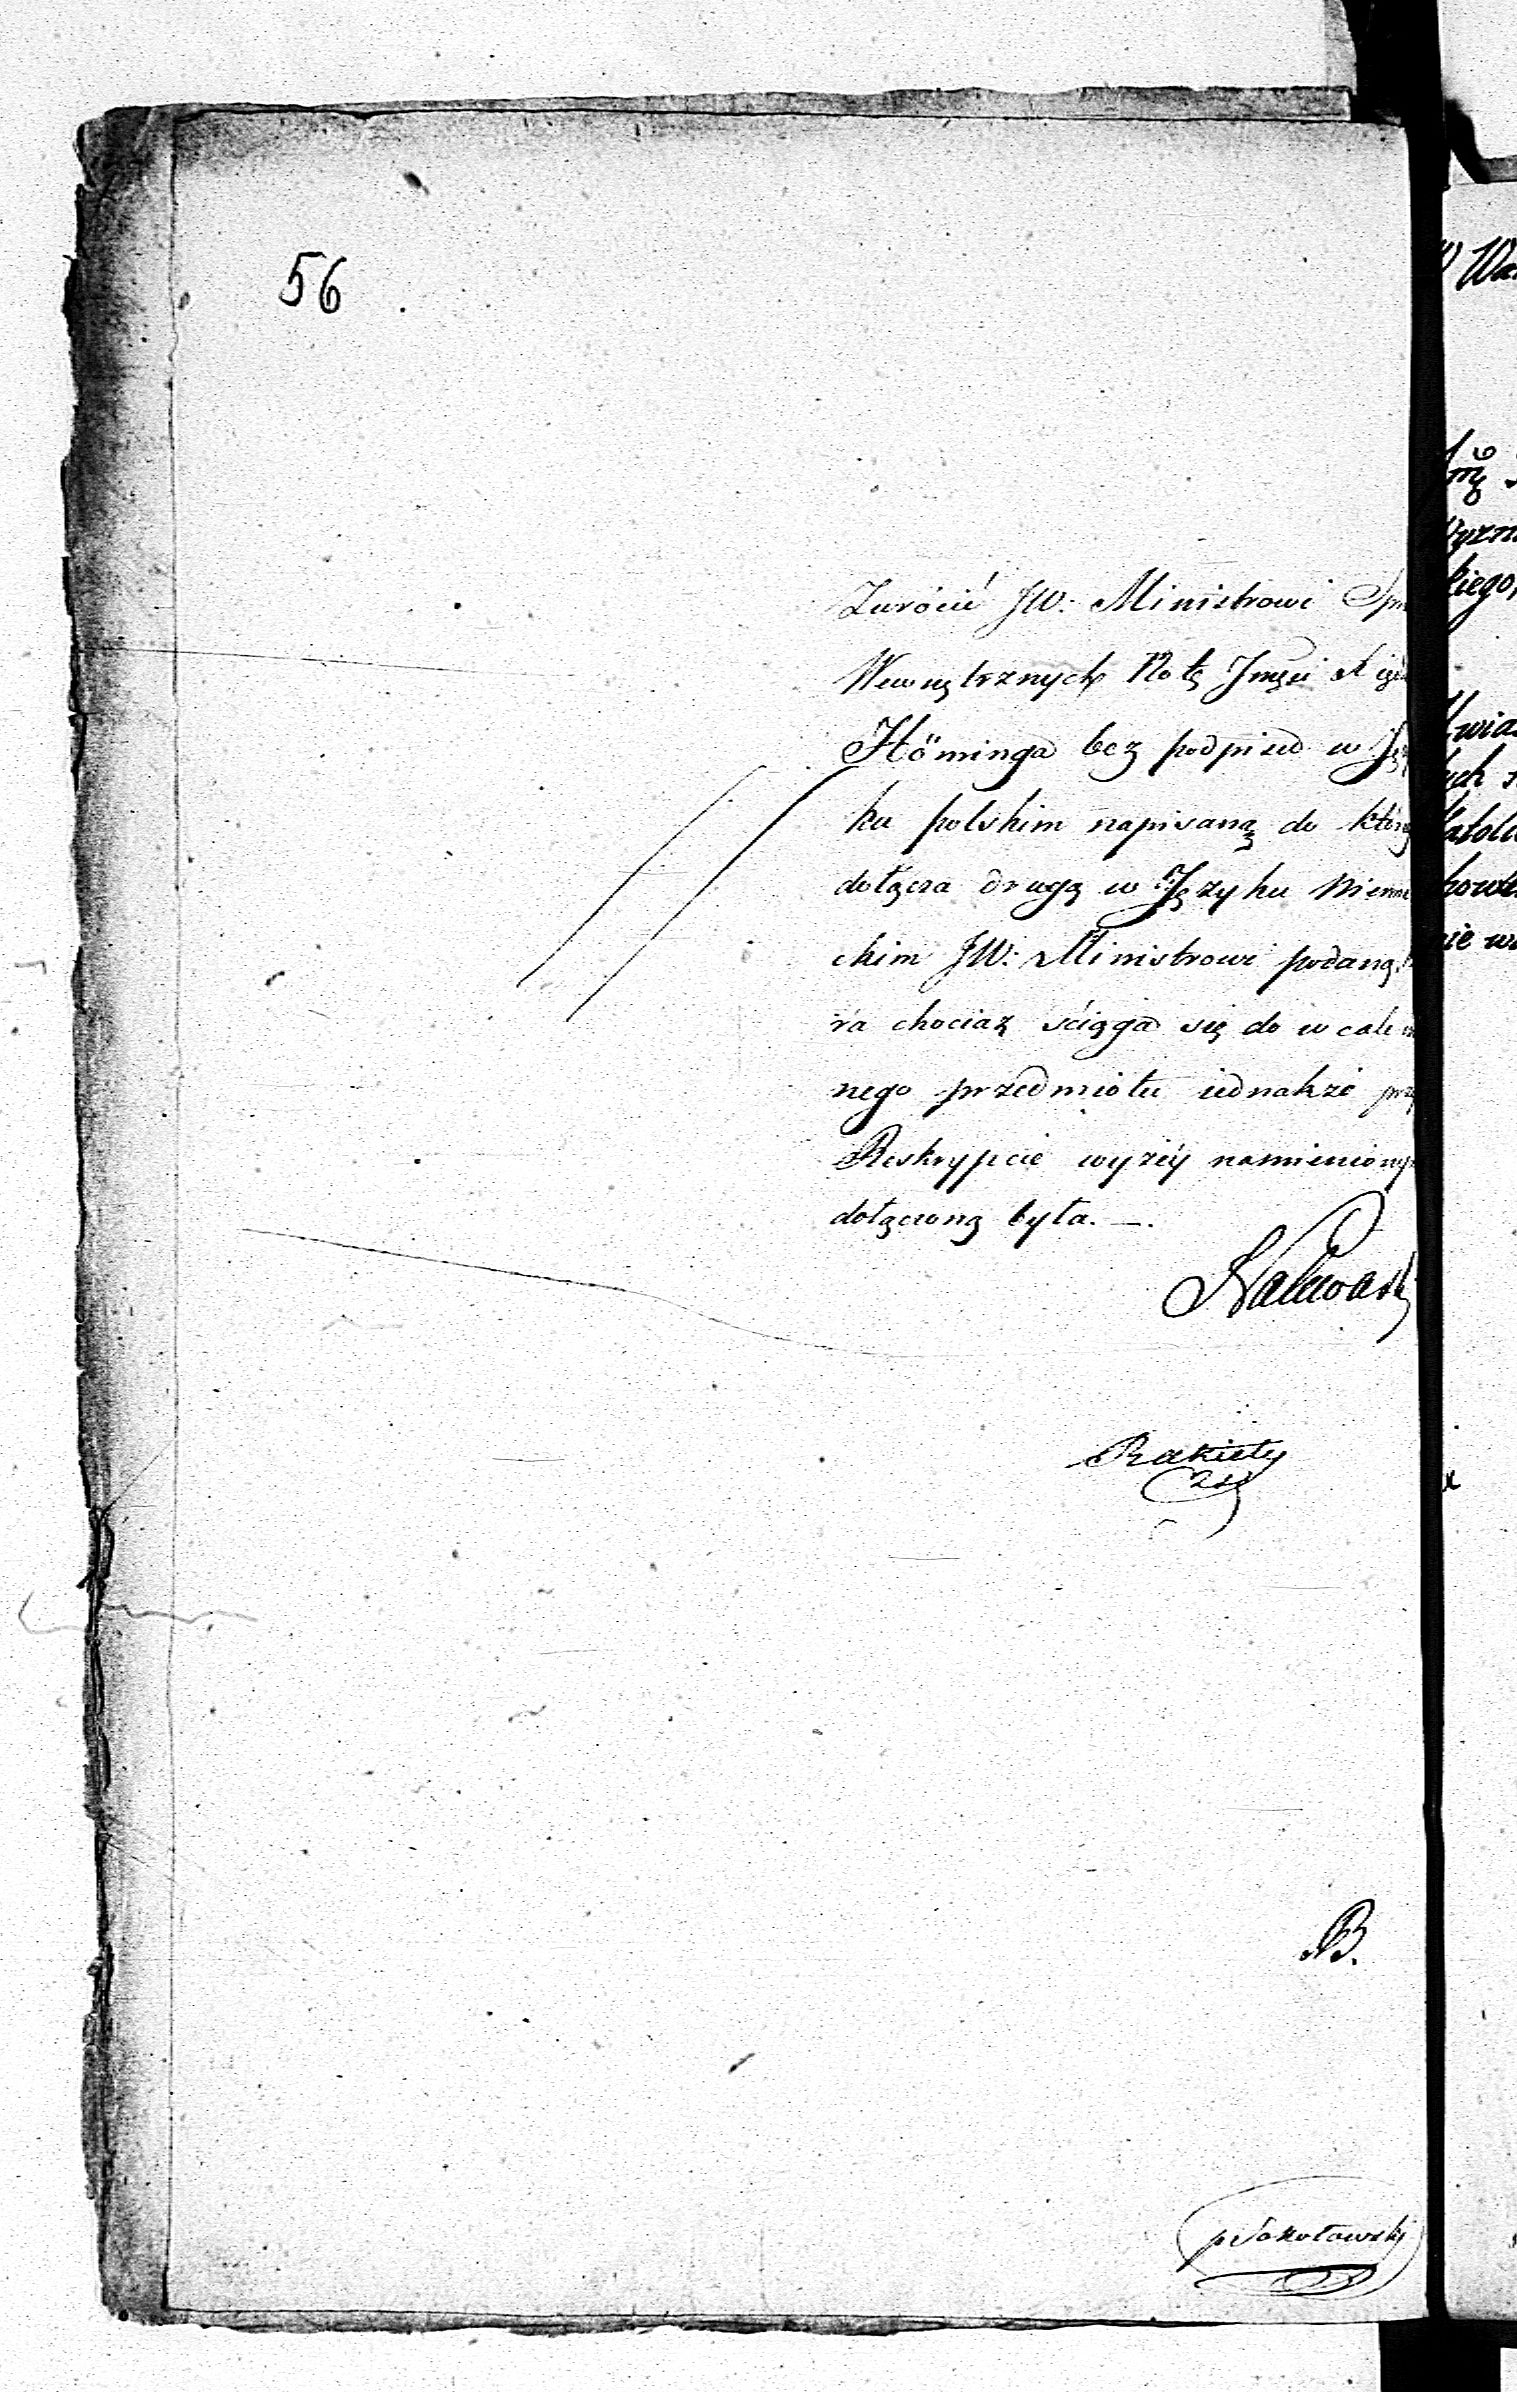 56
Zwrócić JW: Ministrowi Spr
Wewnętrznych Notę Jmści X
Höminga bez podpisu w Ję
ku polskim napisaną do któr
dołącza drugą w Języku Niem
ckim JW: Ministrowi podaną
ra chociaż ściąga się do w cale
nego przedmiotu iednakże prz
Reskrypcie wyżéy namieniony
dołączoną była. —.
Nalewaski
Rakiety
B.
pSokołowski
W Wa
kiego,